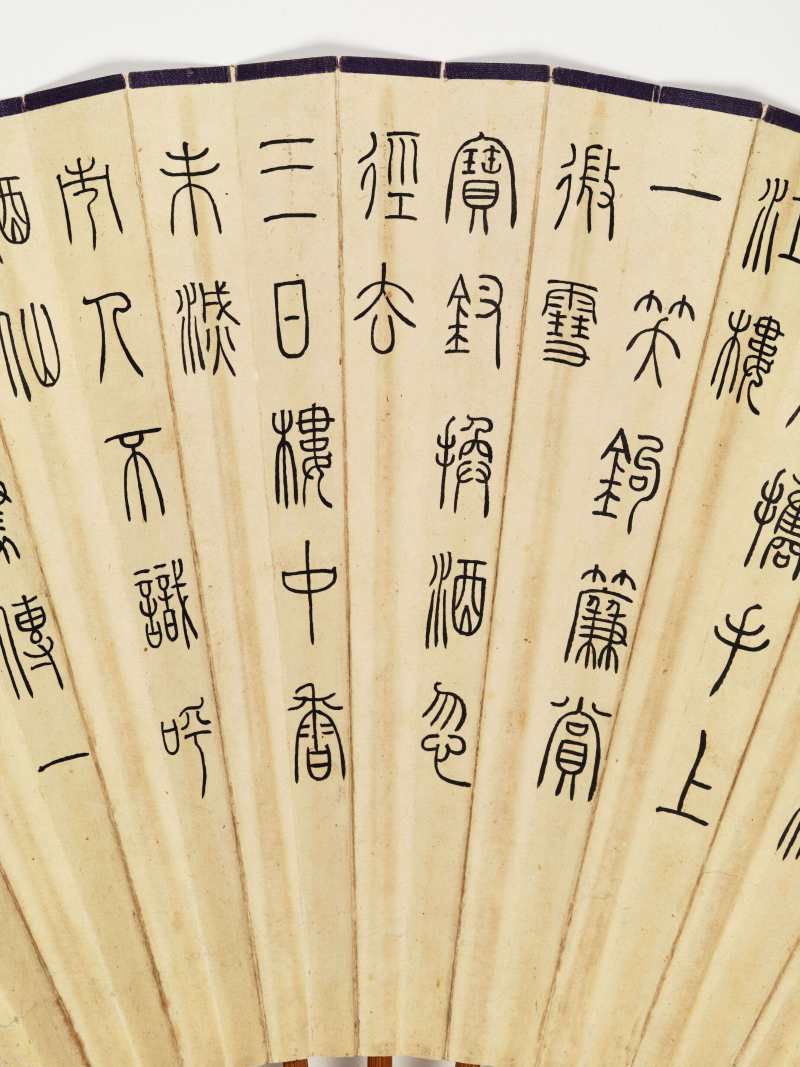 攜手上
江樓
一笑鉤簾賞
微雪
寶釵換酒忽
徑去
三日樓中香
未滅
市人不識呼
酒仙
傳一